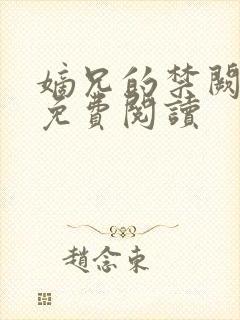 嫡兄的禁闕
免費閱讀
趙念東